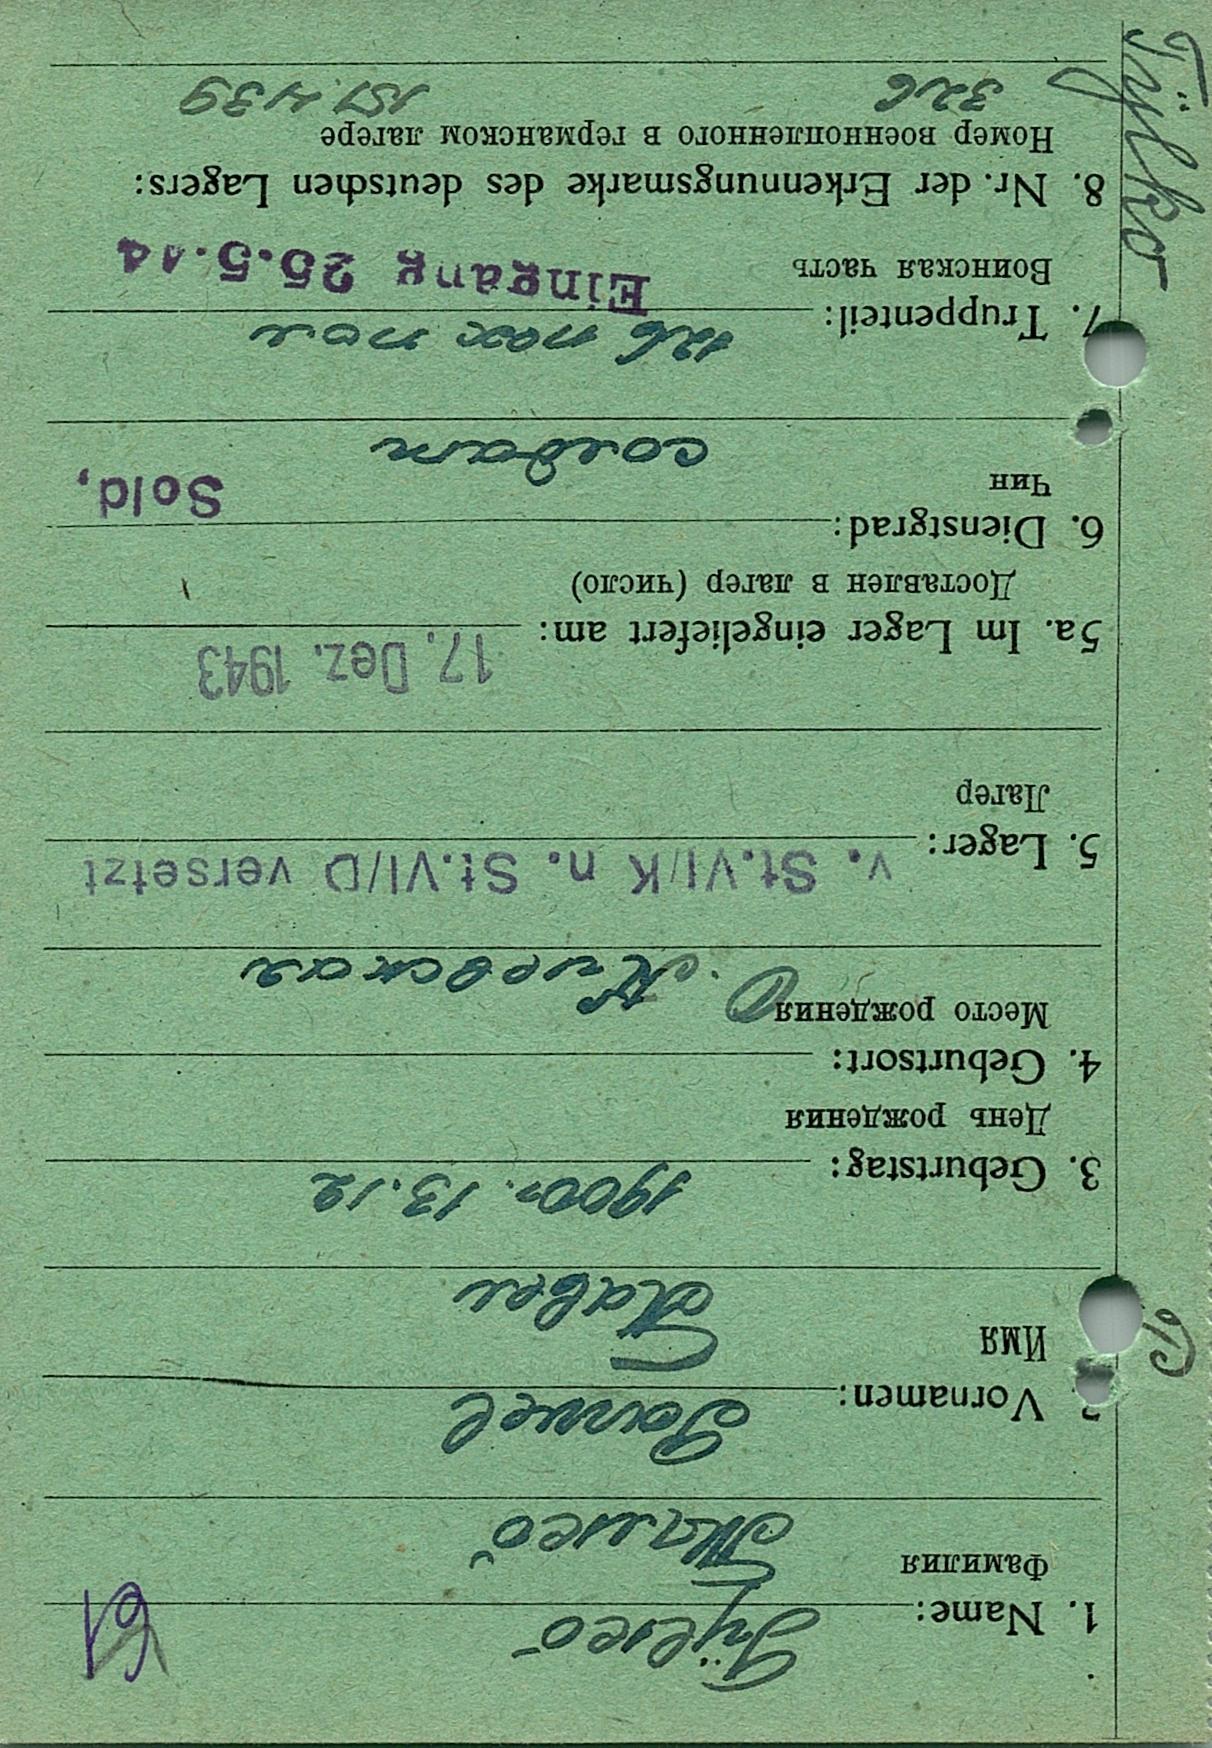 61
1. Name:
Фамилия
Vornamen: Pawel
Имя Павел
3. Geburtstag: 1900 г. 13.12
День рождения
4. Geburtsort:
Место рождения О. Киевская
5. Lager: v. St.VI/K n. St.VI/D versetzt
Лагер
5a. Im Lager eingeliefert am: 17. Dez. 1943
Доставлен в лагер (число)
6. Dienstgrad: Sold,
Чин солдат
7. Truppenteil: 126
Воинская часть Eingang 25.5.44
8. Nr. der Erkennungsmarke des deutschen Lagers:
Номер военнопленного в германском лагере
326 151.439
Tÿlko